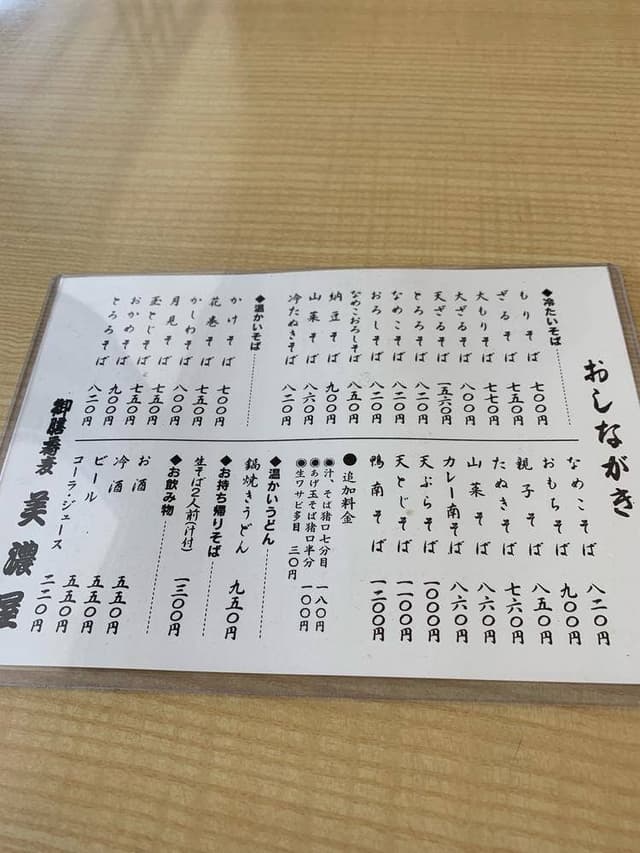 おしながき
◆冷たいそば
もりそば 七〇〇円
ざるそば 七五〇円
大もりそば 七七〇円
大ざるそば 八〇〇円
天ざるそば 一五六〇円
とろろそば 八二〇円
なめこそば 八二〇円
おろしそば 八二〇円
なめこおろしそば 八五〇円
納豆そば 九〇〇円
山菜そば 八六〇円
冷たぬきそば 八二〇円
◆温かいそば
かけそば 七〇〇円
花巻そば 七五〇円
かしわそば 八〇〇円
月見そば 七五〇円
玉とじそば 七五〇円
おかめそば 九〇〇円
とろろそば 八二〇円
なめこそば 八二〇円
おもちそば 九〇〇円
親子そば 八五〇円
たぬきそば 七六〇円
山菜そば 八六〇円
カレー南そば 八六〇円
天ぷらそば 一〇〇〇円
天とじそば 一一〇〇円
鴨南そば 一二〇〇円
●追加料金
◉汁、そば猪口七分目 一八〇円
◉あげ玉そば猪口半分 一〇〇円
◉生ワサビ多目 三〇円
◆温かいうどん
鍋焼きうどん 九五〇円
◆お持ち帰りそば
生そば2人前(汁付) 一三〇〇円
◆お飲み物
お酒 五五〇円
冷酒 五五〇円
ビール 五五〇円
コーラ・ジュース 二二〇円
御膳蕎麦 美濃屋